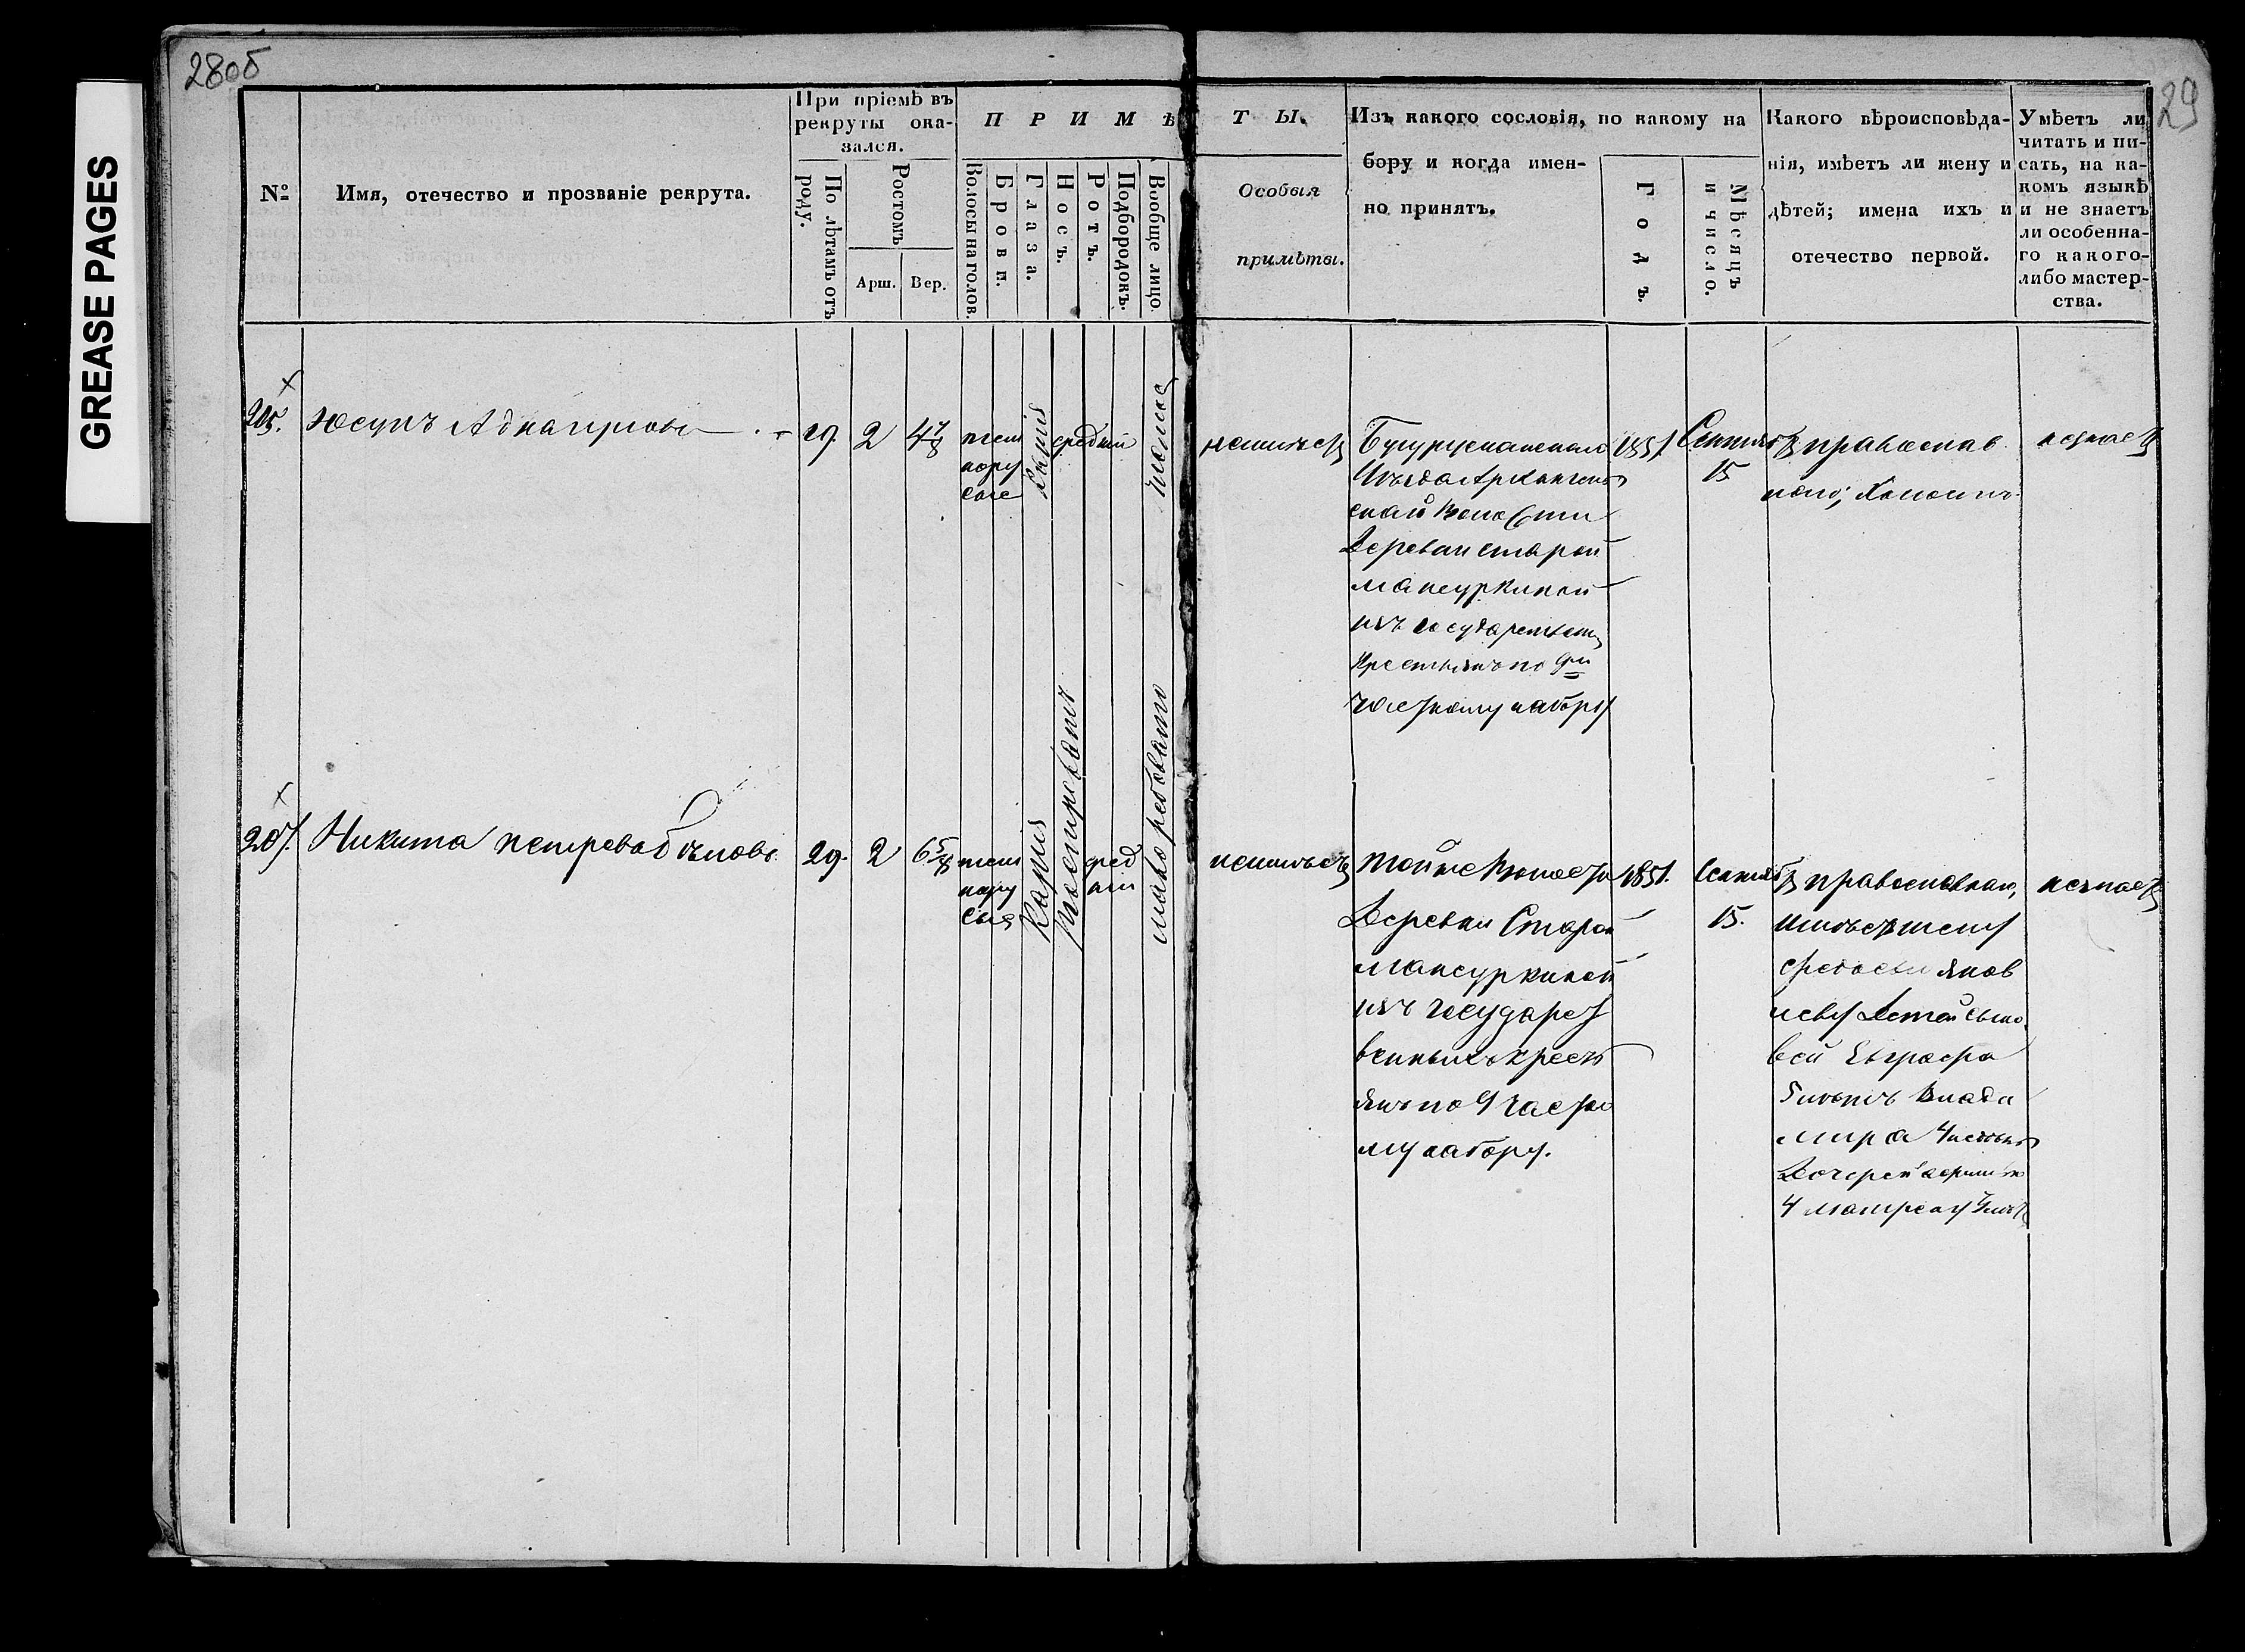 28об
29
GREASE PAGES
№
Имя, отечество и прозваніе рекрута.
При пріемѣ въ
рекруты ока-
зался.
По лѣтамъ отъ
роду.
Ростомъ
Арш.
Вер.
П Р И М Ѣ
Волосы на голов.
Брови.
Глаза.
Носъ.
Ротъ.
Подбородокъ.
Вообще лицо.
Т Ы.
Особыя
примѣты.
Изъ какого сословія, по какому на
бору и когда имен-
но принятъ.
Годъ.
Мѣсяцъ
и число.
Какого вѣроисповѣда-
нія, имѣетъ ли жену и
дѣтей; имена ихъ и
отечество первой.
Умѣетъ ли
читать и пи-
сать, на ка-
комъ языкѣ
и не знаетъ
ли особенна-
го какого-
либо мастер-
ства.
Юсупъ
29.
2
4 7/8
темн
нору
сые
Каріе
средній
чистое
неимѣетъ
Бугурусланскаго
Уѣзда Архангель
ской Волости
Деревни Старой
Мансуркиной
изъ государствен
Крестьянъ по 9ти
частному набору
1851.
Сентяб
15
православ
наго; Холостъ
незнаетъ
207.
Никита Петровъ
29.
2
6 5/8
темн
нору
сыя
Карія
сред
ніи
неимѣетъ
Тойже Волости
Деревни Старой
Мансуркиной
изъ Государст
венныхъ крест
янъ по 9 частно
му набору.
1851.
Сентяб
15.
православнаго,
имѣетъ жену
Яков
леву Детей сыно
вей Евграфа
5 летъ Влади
мира
Дочерей
Матрену
незнаетъ